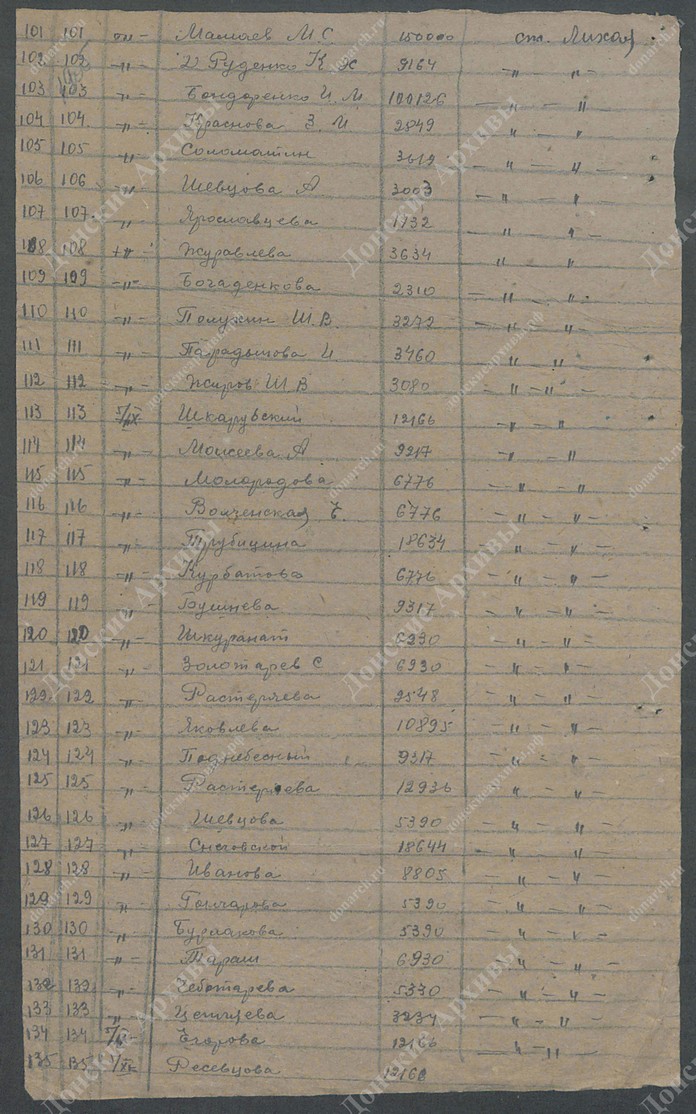 101 101 -"- Мамаев М С 150000 ст. Лихая
102 102 -"- Руденко К Х 9164 " " -
103 103 " - Бондоренко И. М 100126 - " - "
104 104. -"- Краснова З. И 2849 - " - "
105 105 -"- Соломатин 3619 - " - "
106 106 -"- Шевцова А 3003 - " - "
107 107. -"- Ярославцева 1732 - " - "
108 108 " - Журавлева 3634 " "
109 109 -"- Богаденкова 2310 - " - "
110 110 -"- Полухин Ш. В. 3272 - " - "
111 111 -"- Парадымова И. 3460 " "
112 112 -"- Жиров Ш В 3080 - " - " -
113 113 5/IX- Шкарувский 12166 - " - "
114 114 -"- Моисеева А 9217 - " - "
115 115 -"- Молородова 6776 - " - " -
116 116 -"- Волченская Е. 6776 - " - " -
117 117 -"- Трубицина 18634 - " - " -
118 118 -"- Курбатова 6776 - " - " -
119 119 " Бушнева 9317 - " - " -
120 120 -"- Шкуранат 6930 - " - " -
121 121 -"- Золотарев С 6930 - " - " -
122 122 -"- Растеряева 9548 - " - "
123 123 -"- Яковлева 10895 - " - "
124 124 -"- Поднебесный 9317 - " - " -
125 125 -"- Растеряева 12936 - " - "
126 126 -"- Шевцова 5390 - " - " -
127 127 -"- Снеговской 18644 - " - "
128 128 -"- Иванова 8805 - " - " -
129 129 " Гончарова 5390 - " - " -
130 130 " Бурлакова 5390 - " - " -
131 131 -"- Тараш 6930 - " - " -
132 132 -"- Чеботарева 5330 - " - " -
133 133 " 3234 - " - "
134 134 Егорова 12166 - " - "
135 135 Ресевцова 12166